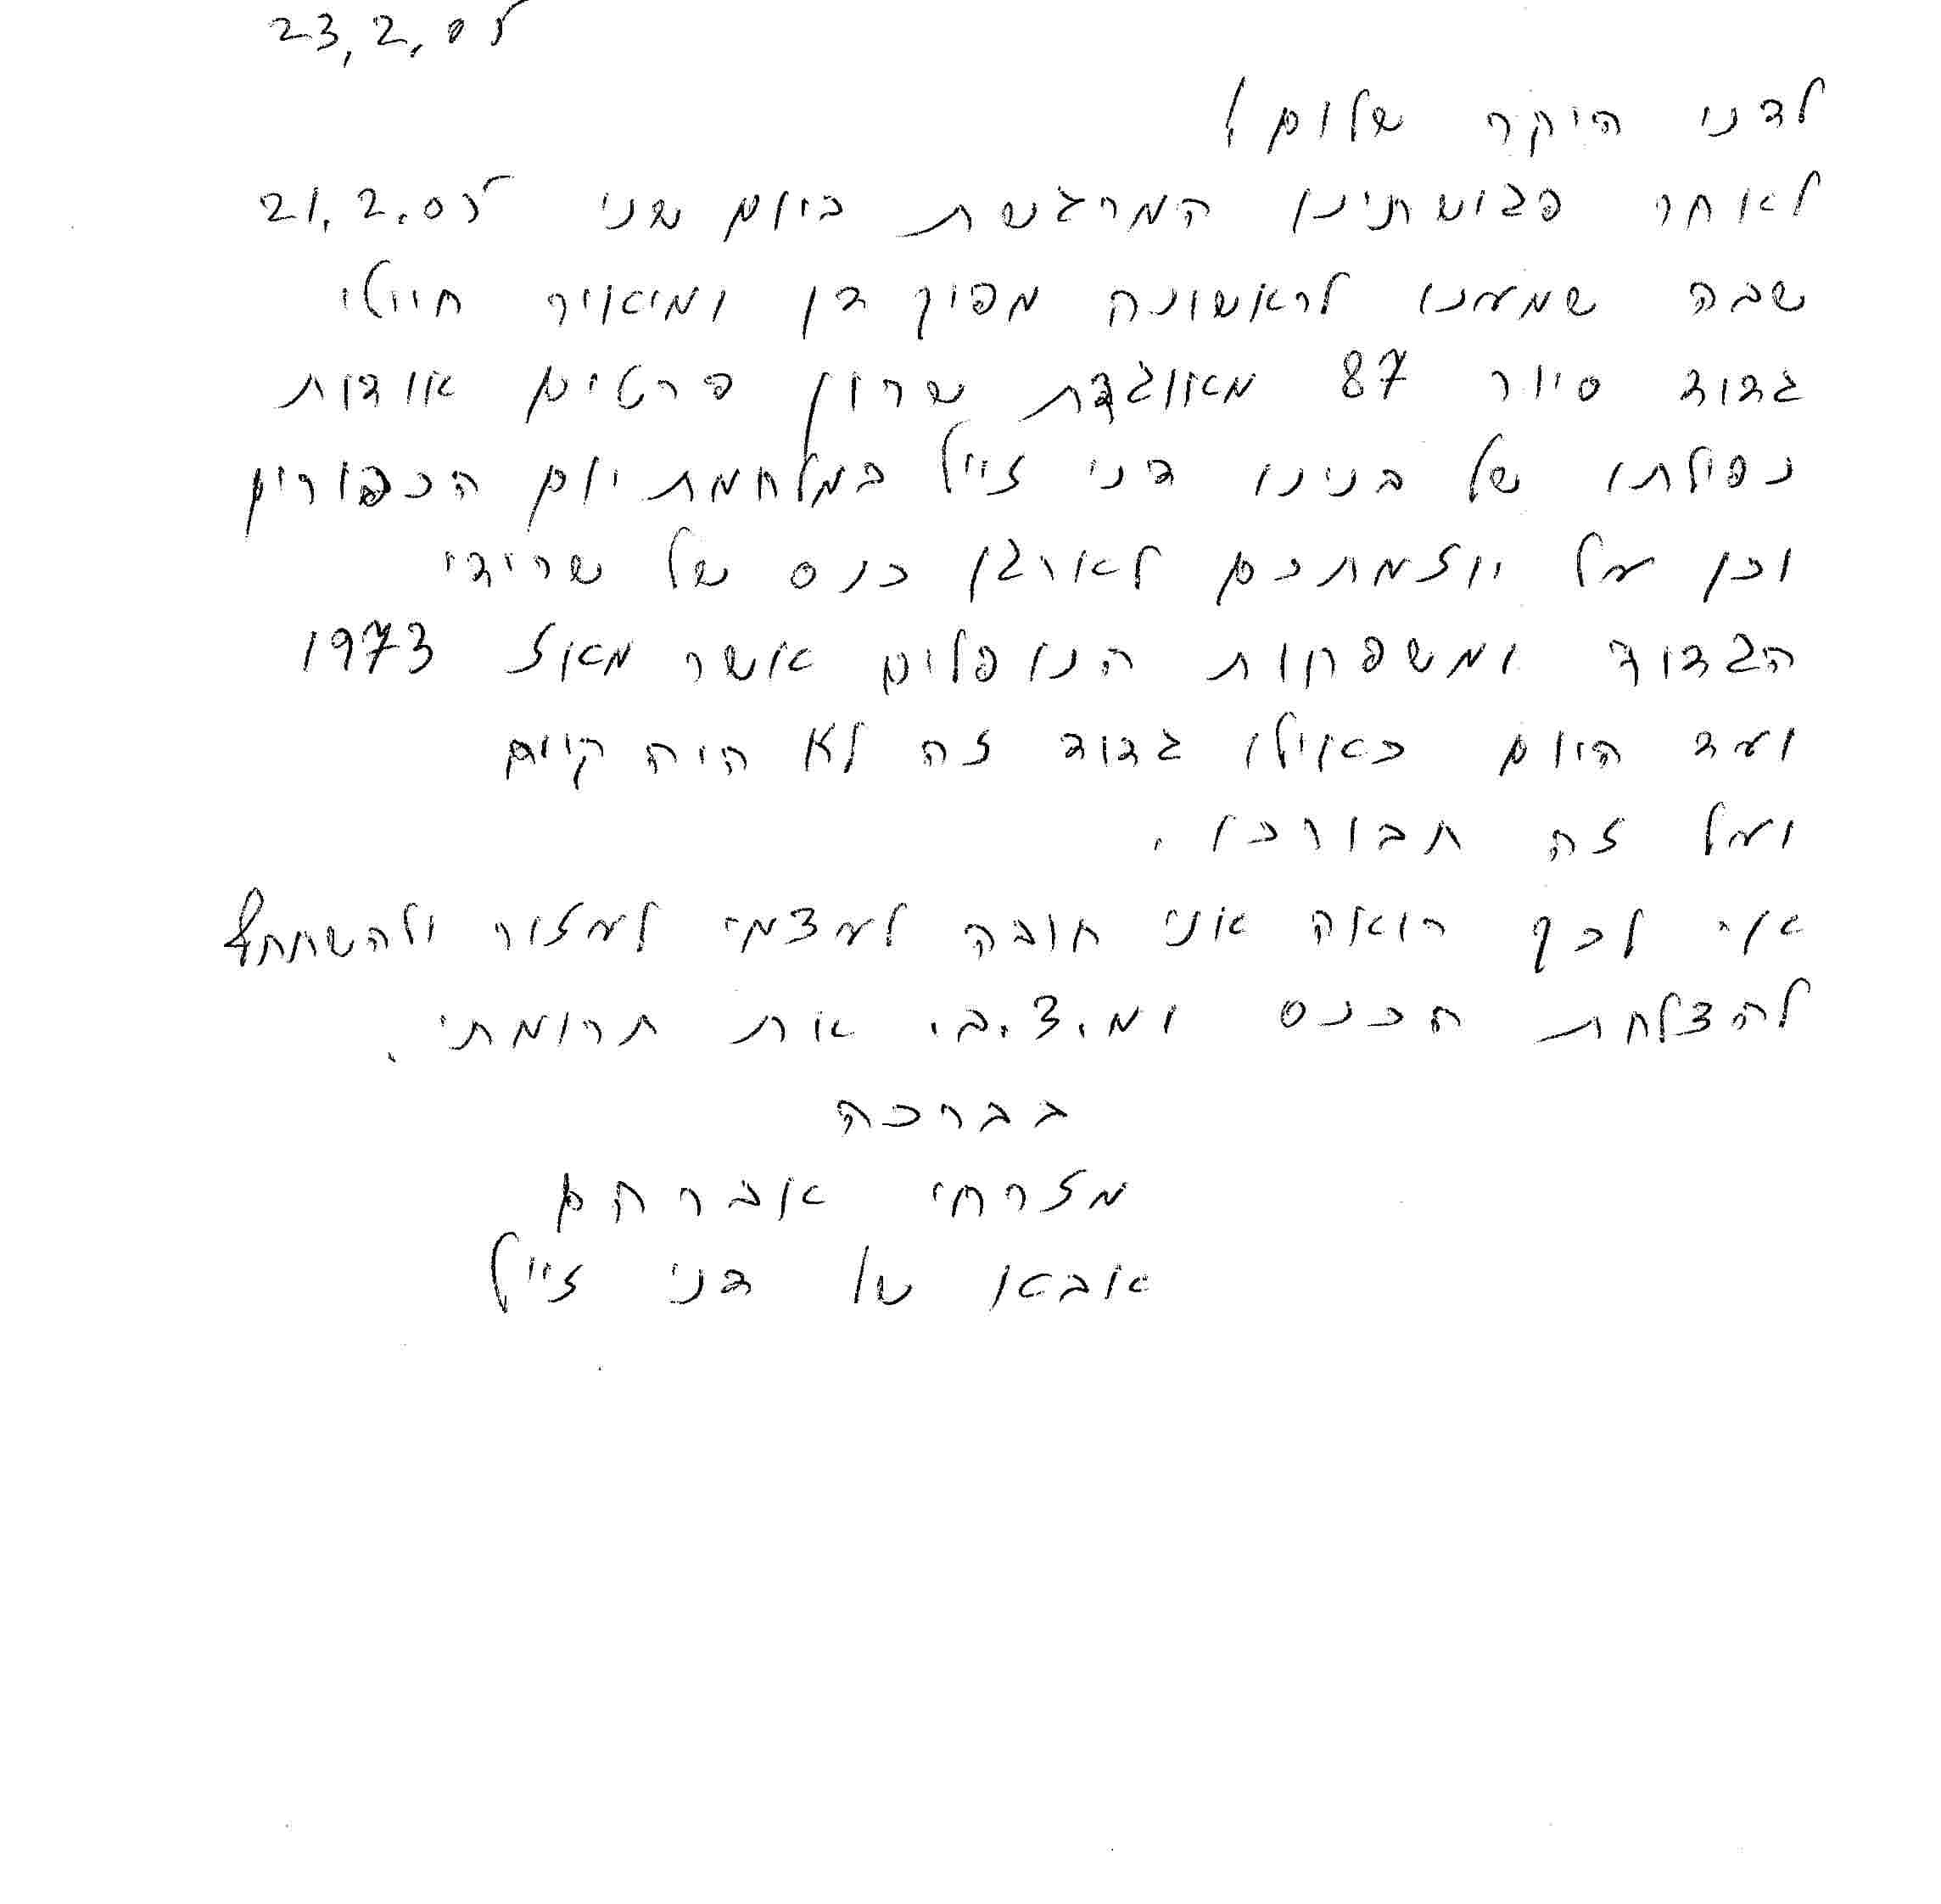 23.2.05
לדני היקר שלום!
לאחר פגושתינו המרגשת ביום שני 21.2.05
שבה שמענו לראשונה מפיך דן ומיאיר חיילי
גדוד סיור 87 מאוגדת שרון פרטים אודות
נפילתו של בנינו דני זייל במלחמת יום הכפורים
וכן על יוזמתכם לארגן כנס של שרידי
הגדוד ומשפחות הנופלים אשר מאז 1973
ועד היום כאילו גדוד זה לא היה קיים
ועל זה תבורכו.
אי לכך רואה אני חובה לעצמי לעזור ולהשתתף
להצלחת הכנס ומ.צ.ב. את תרומתי.
בברכה
מזרחי אברהם
אבא של דני זייל